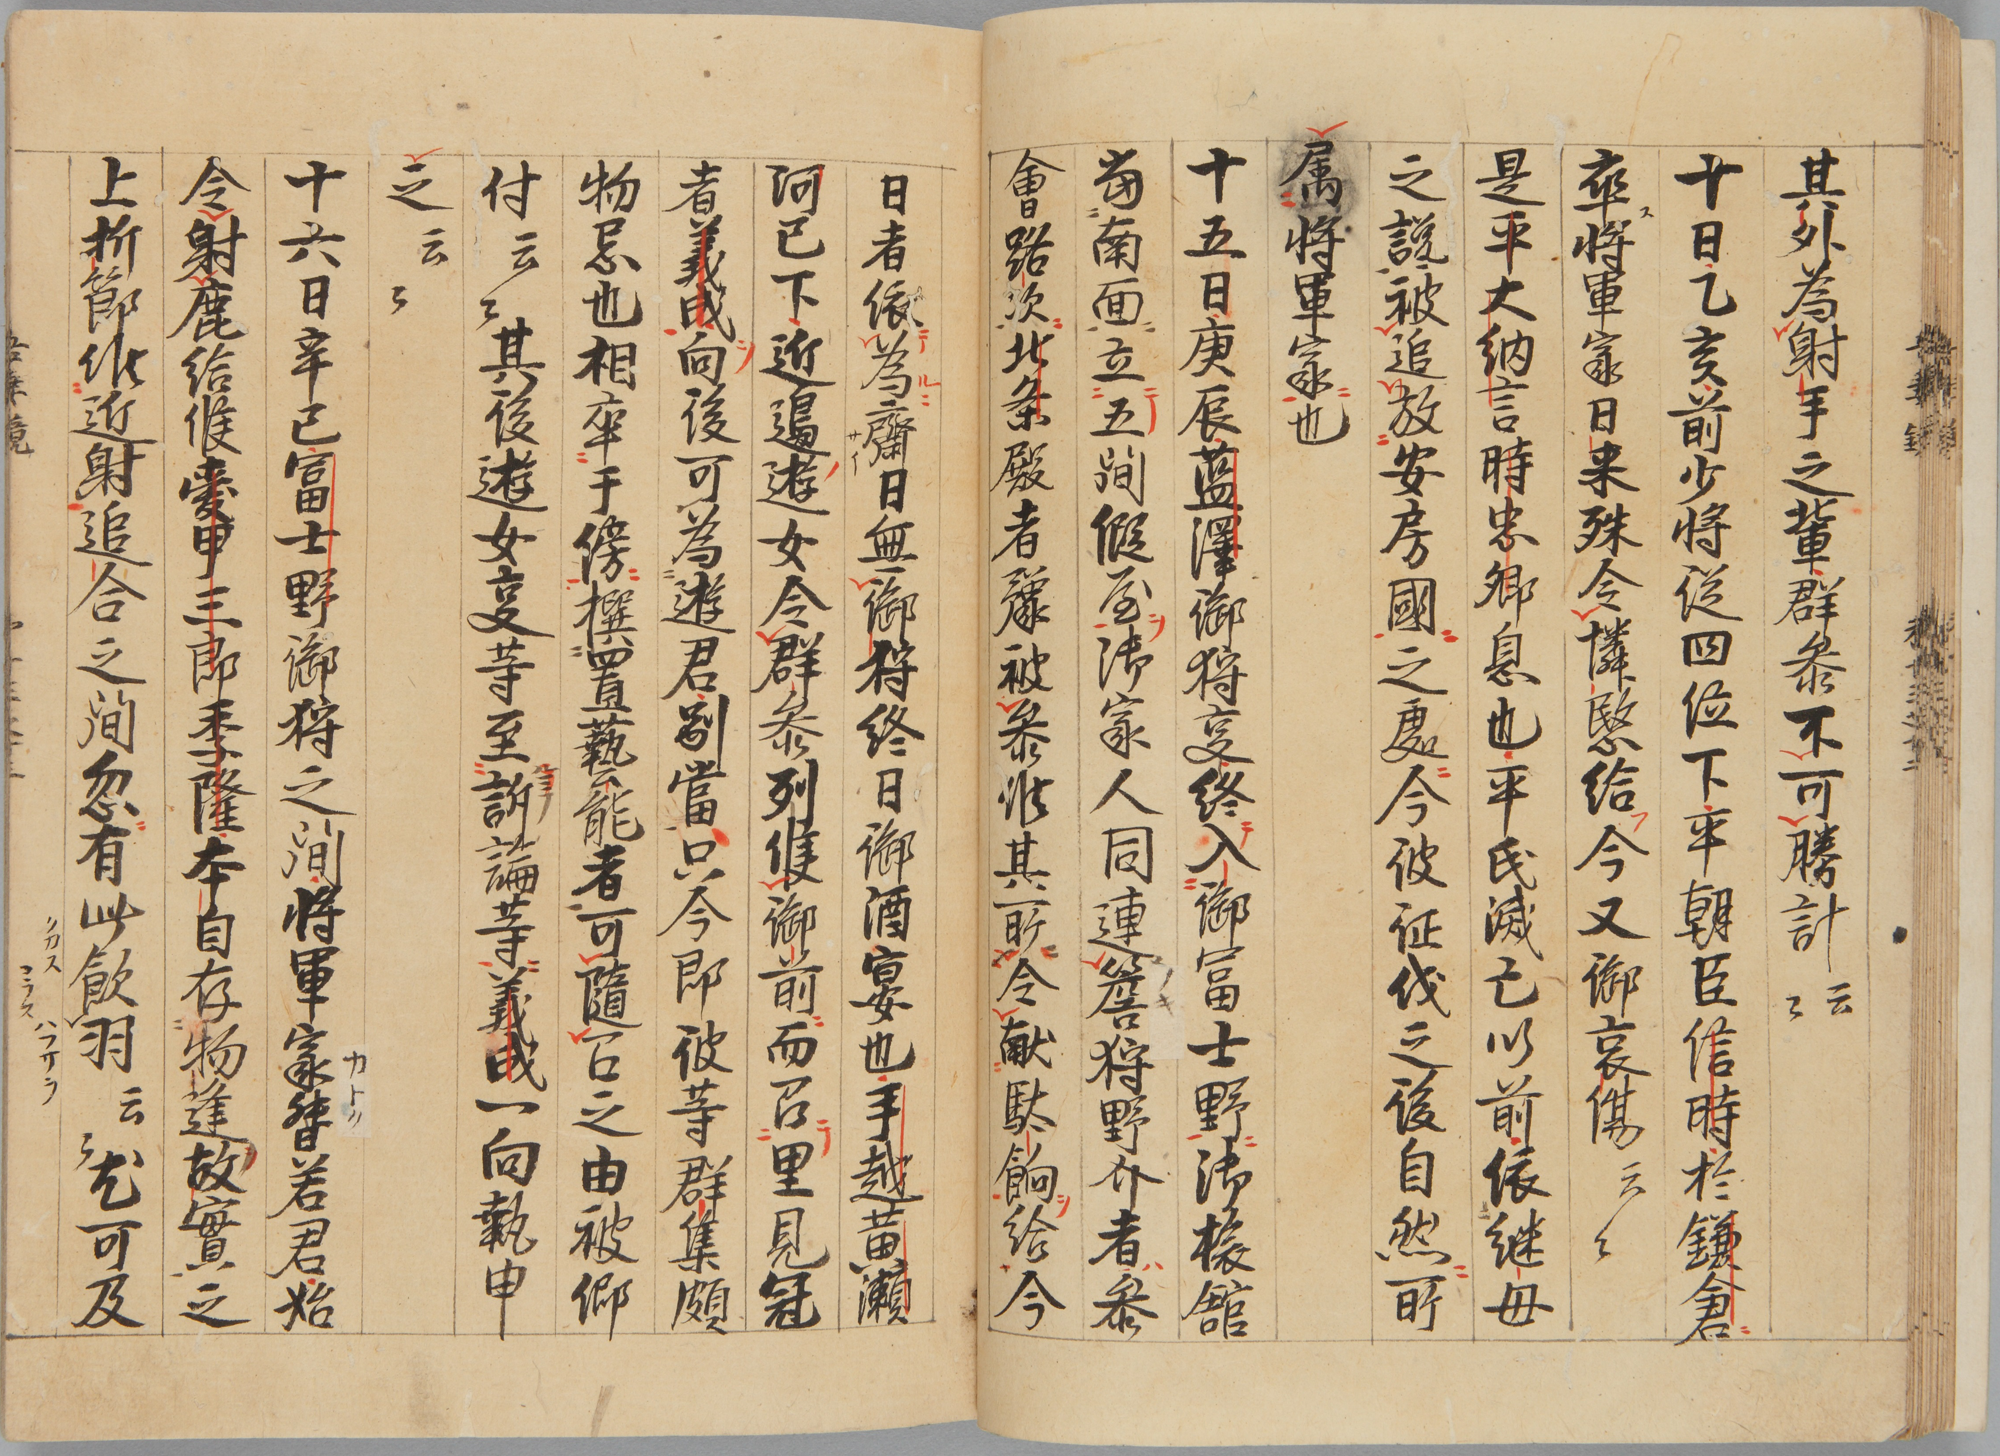 其外為射手之輩群参不可勝計云〻
十日乙亥前少将従四位下平朝臣信時於鎌倉
卒将軍家日来殊令憐愍給今又御哀傷云〻
是平大納言時忠卿息也平氏滅亡以前依継母
之説被追放安房國之處今彼征伐之後自然所
属将軍家也
十五日庚辰藍澤御狩事終入御富士野御旅舘
當南面立五間假屋御家人同連簷狩野介者参
會路次北条殿者豫被参候其所令献駄餉給今
日者依為齋日無御狩終日御酒宴也手越黄瀬
河已下近邊遊女令群参列候御前而召里見冠
者義成向後可為遊君別當只今即彼等群集頗
物忩也相率于傍撰置藝能者可随召之由被仰
付云〻其後遊女事等至訴論等義成一向執申
之云〻
十六日辛巳富士野御狩之間将軍家督若君始
令射鹿給候愛甲三郎季隆本自存物逢故實之
上折節候近射追合之間忽有此飲羽云〻尤可及
テ
ル
サイ
ノキ
カトク
ノカス
コラス
ハフサラ